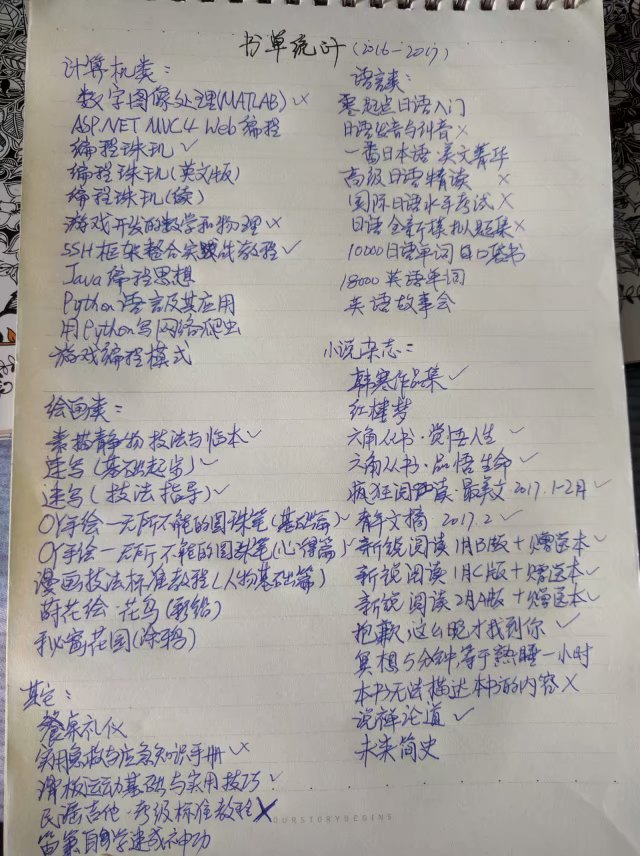 书单统计(2016-2017)
计算机类:
数字图像处理(MATLAB)✓×
ASP.NET MVC4 Web编程
编程珠玑✓
编程珠玑(英文版)
编程珠玑(续)
游戏开发的数学和物理✓×
SSH框架整合实践战教程✓
Java编程思想
Python语言及其应用
用Python写网络爬虫
游戏编程模式
绘画类:
素描静物技法与临本✓
速写(基础起步)✓
速写(技法指导)✓
OY手绘一无所不能的圆珠笔(基础篇)✓
OY手绘一无所不能的圆珠笔(心得篇)✓
漫画技法标准教程(人物基础篇)
莳花绘·花鸟(彩铅)
秘密花园(涂鸦)
其它:
餐桌礼仪
实用急救与应急知识手册✓×
滑板运动基础与实用技巧✓
民谣吉他·考级标准教程×
笛箫自学速成神功
语言类:
零起点日语入门
日语发音与纠音×
一番日本语·美文菁华
高级日语精读 ×
国际日语水平考试×
日语全新模拟题集×
10000日语单词口袋书
18000英语单词
英语故事会
小说杂志:
韩寒作品集✓
红楼梦
六角丛书·觉悟人生✓
六角丛书·品悟生命✓
疯狂阅读·最美文2017.1-2月✓
青年文摘 2017.2✓
新锐阅读1月B版+赠送本✓
新锐阅读1月C版+赠送本✓
新锐阅读2月A版+赠送本✓
抱歉,这么晚才找到你✓
冥想5分钟,等于熟睡一小时
本书无法描述本书的内容×
说禅论道✓
未来简史
YOURSTORYBEGINS